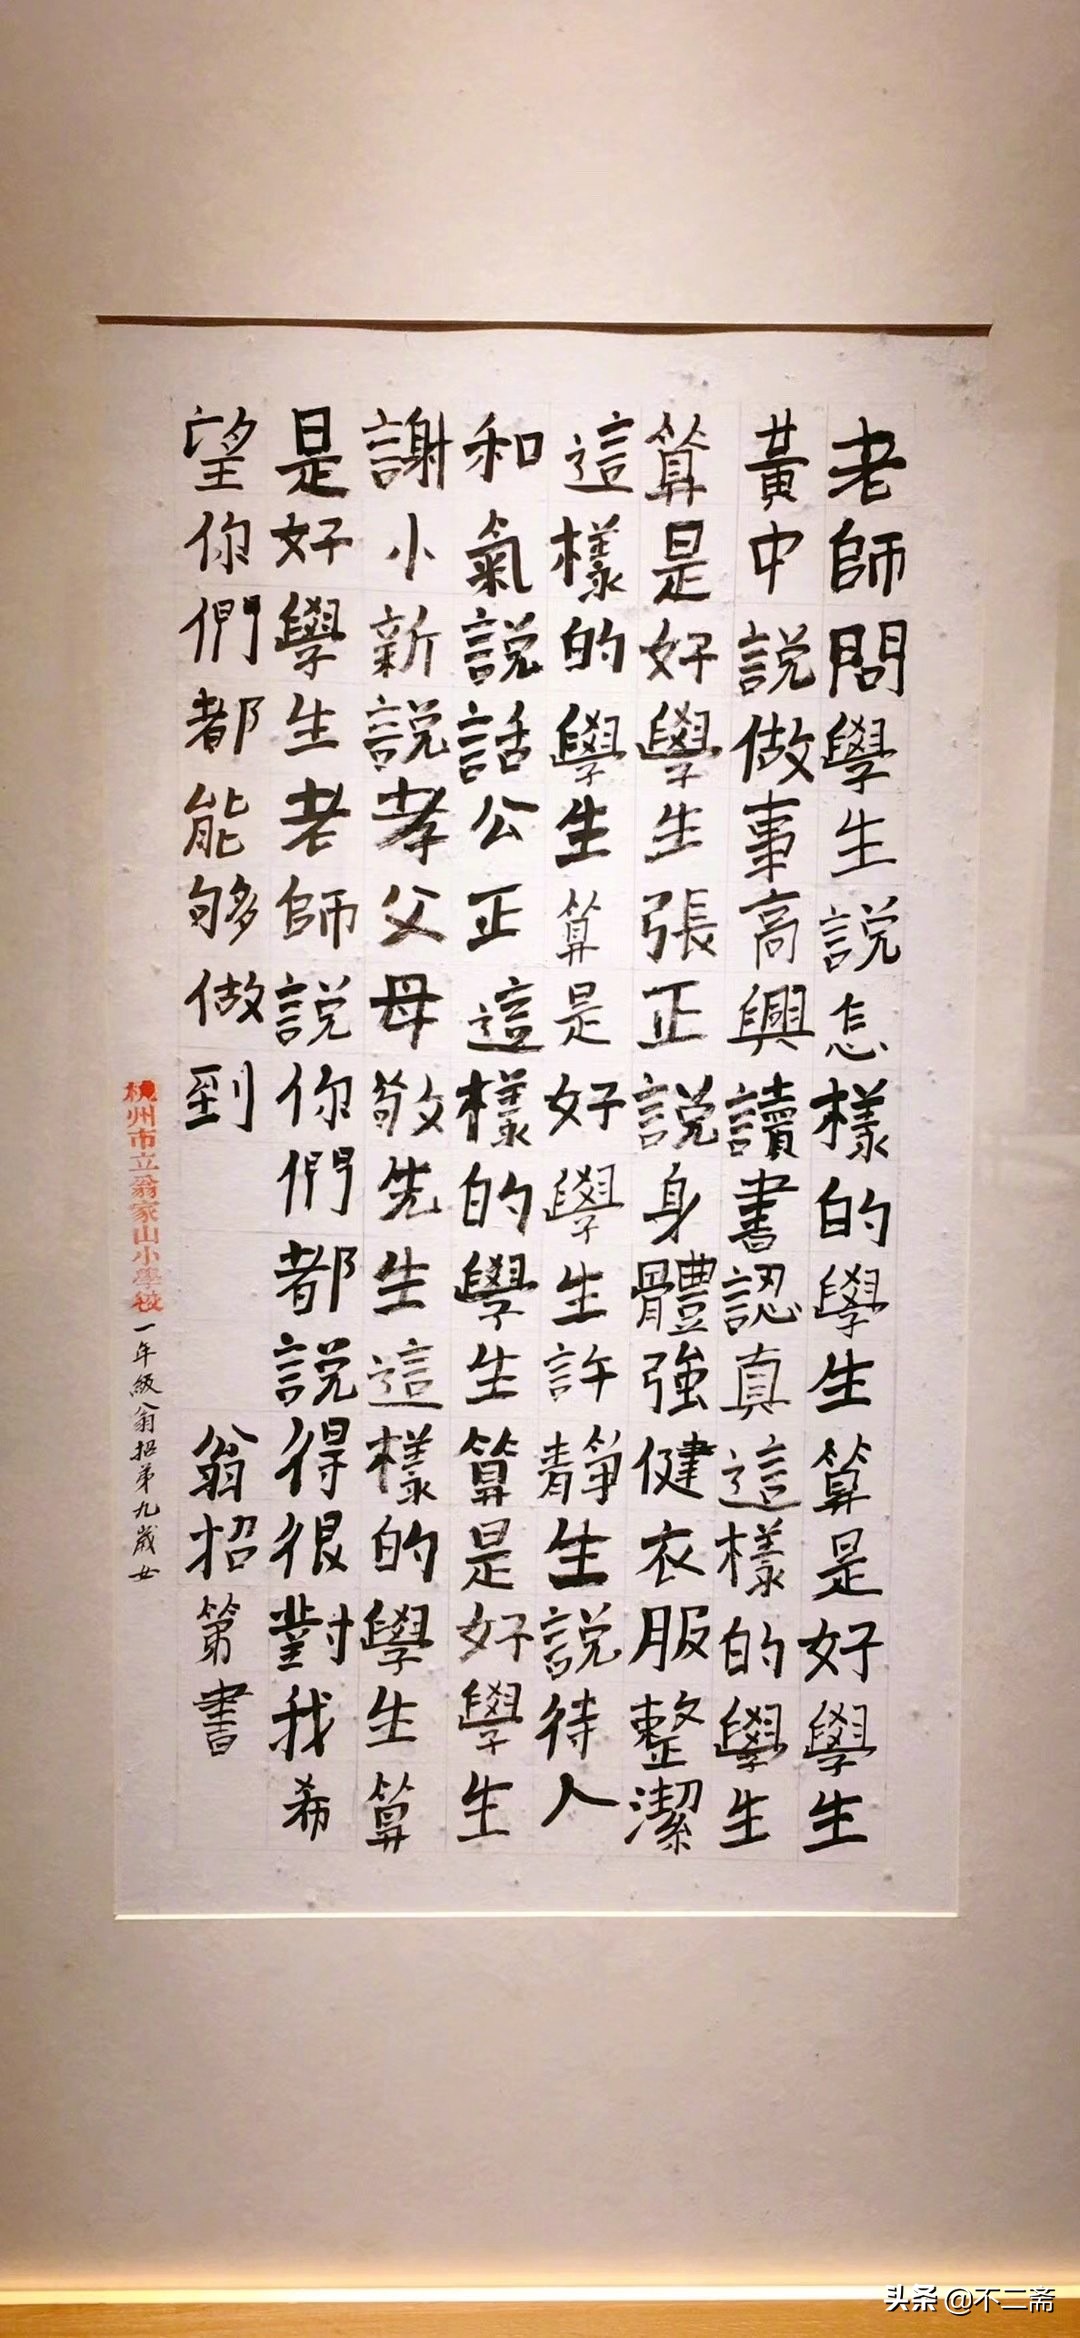 老師問學生説怎樣的學生算是好學生
黃中説做事高興讀書認真這樣的學生
算是好學生張正説身體強健衣服整潔
這樣的學生算是好學生許靜生説待人
和氣説話公正這樣的學生算是好學生
謝小新説孝父母敬先生這樣的學生算
是好學生老師説你們都説得很對我希
望你們都能够做到 翁招第書
杭州市立翁家山小學校一年級翁招弟九歲女
头条 @不二斋